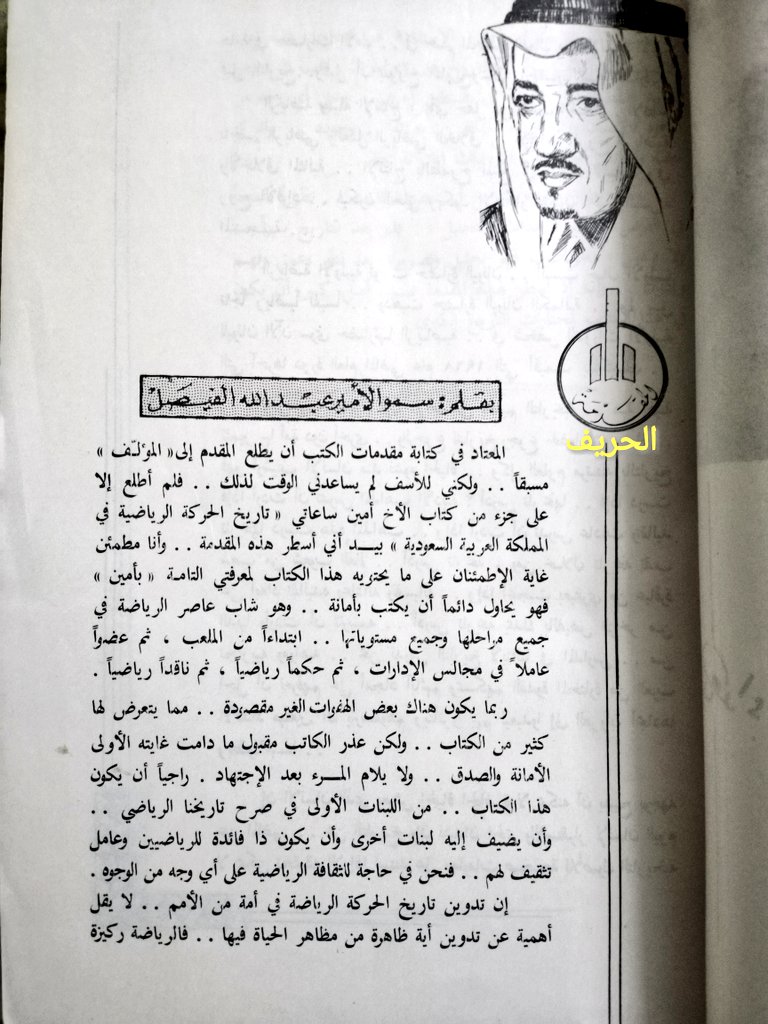 بقلم: سمو الأمير عبد الله الفيصل
الحريف
المعتاد في كتابة مقدمات الكتب أن يطلع المقدم إلى « المؤلَّف »
مسبقاً .. ولكني للأسف لم يساعدني الوقت لذلك .. فلم أطلع إلا
على جزء من كتاب الأخ أمين ساعاتي « تاريخ الحركة الرياضية في
المملكة العربية السعودية » بيـــد أني أسطر هذه المقدمة .. وأنا مطمئن
غاية الإطمئنان على ما يحتويه هذا الكتاب لمعرفتي التامـة « بأمين »
فهو يحاول دائماً أن يكتب بأمانة .. وهو شاب عاصر الرياضة في
جميع مراحلها وجميع مستوياتها .. ابتداءاً من الملعب ، ثم عضواً
عاملاً في مجالس الإدارات ، ثم حكماً رياضياً ، ثم ناقداً رياضياً .
ربما يكون هناك بعض الهفوات الغير مقصودة .. مما يتعرض لها
كثير من الكتاب .. ولكن عذر الكاتب مقبول ما دامت غايته الأولى
الأمانة والصدق .. ولا يلام المــرء بعد الإجتهاد . راجياً أن يكون
هذا الكتاب .. من اللبنات الأولى في صرح تاريخنا الرياضي ..
وأن يضيف إليه لبنات أخرى وأن يكون ذا فائدة للرياضيين وعامل
تثقيف لهم .. فنحن في حاجة للثقافة الرياضية على أي وجه من الوجوه .
إن تدوين تاريخ الحركة الرياضة في أمة من الأمم .. لا يقل
أهمية عن تدوين أية ظاهرة من مظاهر الحياة فيها .. فالرياضة ركيزة